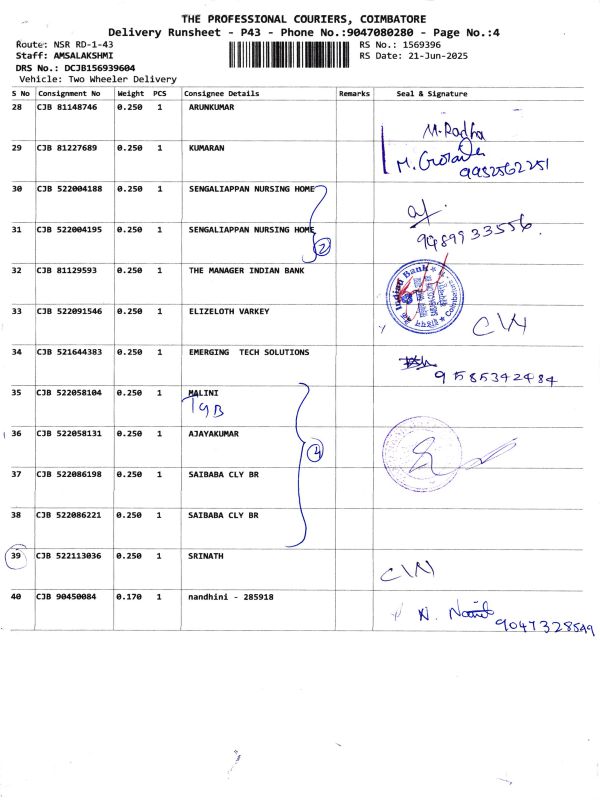 THE PROFESSIONAL COURIERS, COIMBATORE
Delivery Runsheet - P43 - Phone No.:9047080280 - Page No.:4
Route: NSR RD-1-43 RS No.: 1569396
Staff: AMSALAKSHMI RS Date: 21-Jun-2025
DRS No.: DCJB156939604
Vehicle: Two Wheeler Delivery
S No Consignment No Weight PCS Consignee Details Remarks Seal & Signature
28 CJB 81148746 0.250 1 ARUNKUMAR
M. Radha
29 CJB 81227689 0.250 1 KUMARAN
M.
9952562251
30 CJB 522004188 0.250 1 SENGALIAPPAN NURSING HOME
31 CJB 522004195 0.250 1 SENGALIAPPAN NURSING HOME
2
9489933556
32 CJB 81129593 0.250 1 THE MANAGER INDIAN BANK
Indian Bank
Coimbatore
33 CJB 522091546 0.250 1 ELIZELOTH VARKEY
34 CJB 521644383 0.250 1 EMERGING TECH SOLUTIONS
9585342484
35 CJB 522058104 0.250 1 MALINI
TGB
36 CJB 522058131 0.250 1 AJAYAKUMAR
4
37 CJB 522086198 0.250 1 SAIBABA CLY BR
38 CJB 522086221 0.250 1 SAIBABA CLY BR
39 CJB 522113036 0.250 1 SRINATH
40 CJB 90450084 0.170 1 nandhini - 285918
N.
9047328549